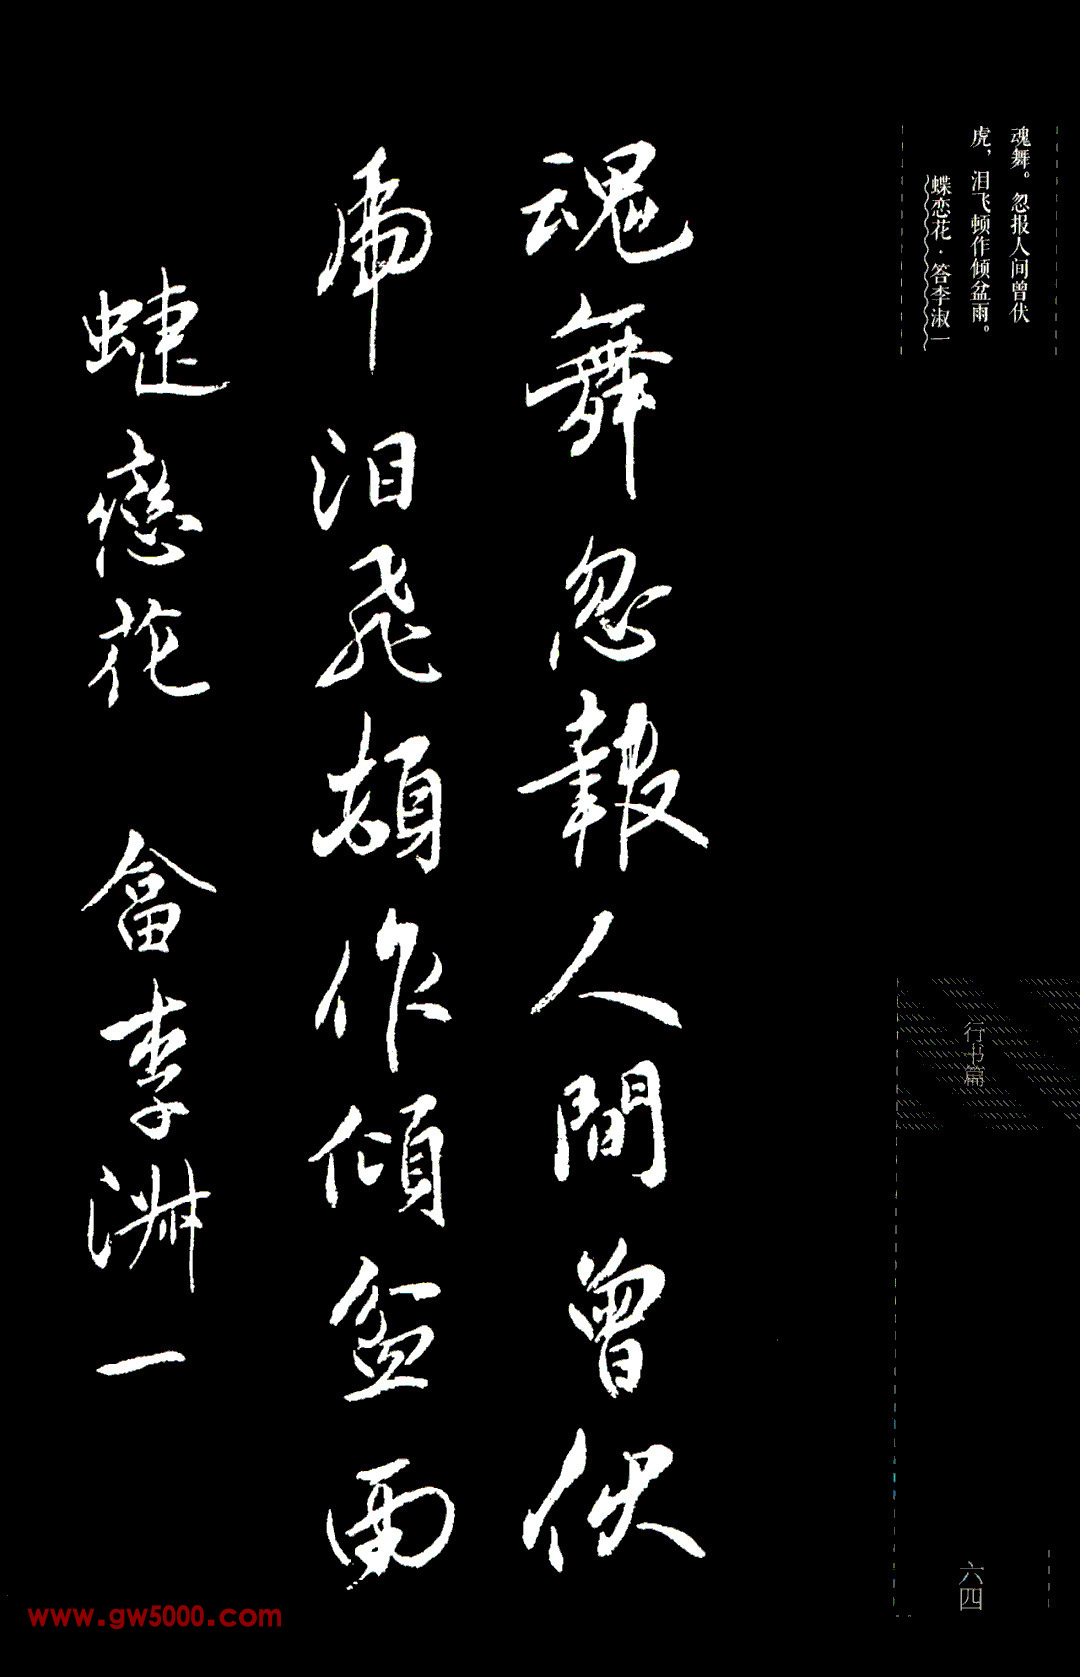 魂舞。忽报人间曾伏
虎，泪飞顿作倾盆雨。
蝶恋花·答李淑一
魂舞忽報人間曾伏
虎泪飛頓作傾盆雨
蝶戀花 畣李淑一
行书篇
六四
www.gw5000.com